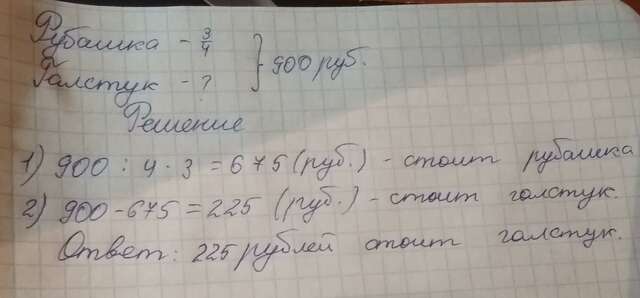 Рубашка - 3/4
Галстук - ?
} 900 руб.
Решение
1) 900 : 4 · 3 = 675 (руб.) - стоит рубашка
2) 900 - 675 = 225 (руб.) - стоит галстук.
Ответ: 225 рублей стоит галстук.